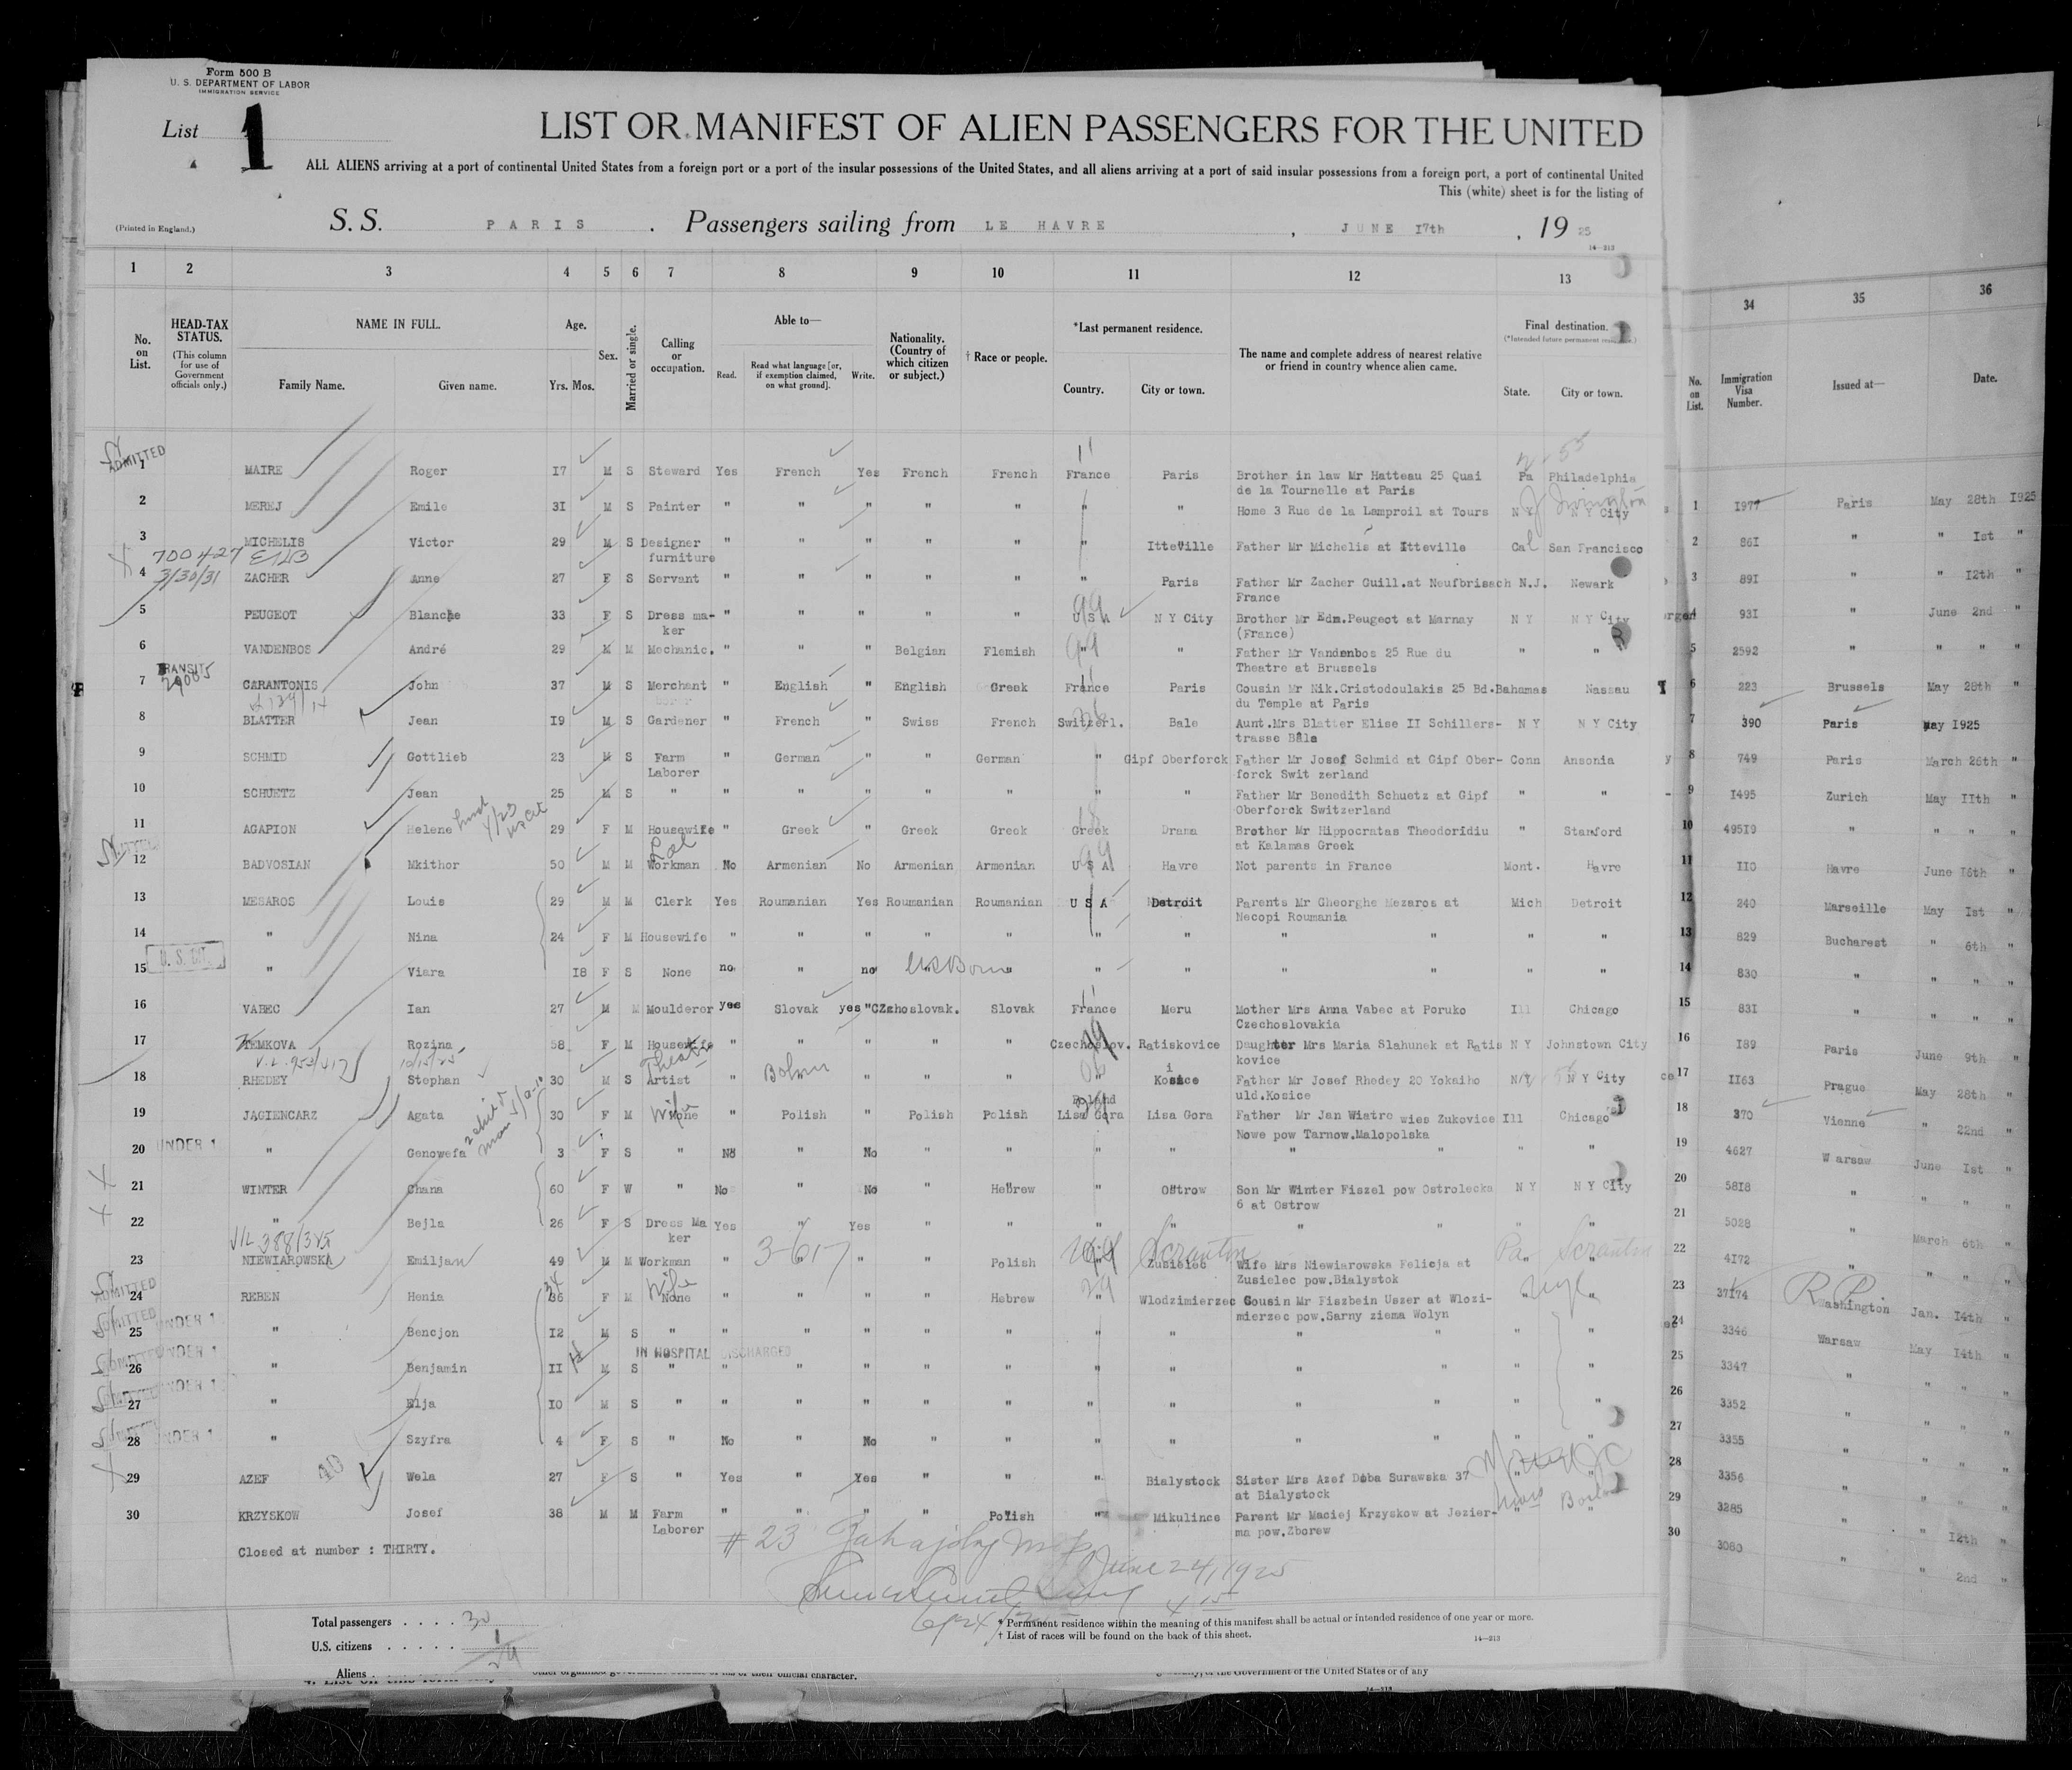 Form 500 B
U. S. DEPARTMENT OF LABOR
IMMIGRATION SERVICE
List 1
LIST OR MANIFEST OF ALIEN PASSENGERS FOR THE UNITED
ALL ALIENS arriving at a port of continental United States from a foreign port or a port of the insular possessions of the United States, and all aliens arriving at a port of said insular possessions from a foreign port, a port of continental United
This (white) sheet is for the listing of
(Printed in England.) S. S. PARIS . Passengers sailing from LE HAVRE , JUNE I7th , 19 25
14—213
1 2 3 4 5 6 7 8 9 10 11 12 13 34 35 36
No. on List. HEAD-TAX STATUS. (This column for use of Government officials only.) NAME IN FULL. Family Name. Given name. Age. Yrs. Mos. Sex. Married or single. Calling or occupation. Able to— Read. Read what language [or, if exemption claimed, on what ground]. Write. Nationality. (Country of which citizen or subject.) † Race or people. *Last permanent residence. Country. City or town. The name and complete address of nearest relative or friend in country whence alien came. Final destination. (*Intended future permanent residence.) State. City or town. No. on List. Immigration Visa Number. Issued at— Date.
ADMITTED
1 MAIRE Roger I7 M S Steward Yes French Yes French French France Paris Brother in law Mr Hatteau 25 Quai Pa Philadelphia
de la Tournelle at Paris
2 MEREJ Emile 3I M S Painter " " " " " " " Home 3 Rue de la Lamproil at Tours N Y N Y City
3 MICHELIS Victor 29 M S Designer " " " " " " Itteville Father Mr Michelis at Itteville Cal San Francisco
furniture
700427
3/30/31
4 ZACHER Anne 27 F S Servant " " " " " " Paris Father Mr Zacher Guill.at Neufbrisach N.J. Newark
France
5 PEUGEOT Blanche 33 F S Dress ma- " " " " " U S A N Y City Brother Mr Edm.Peugeot at Marnay N Y N Y City
ker (France)
6 VANDENBOS André 29 M M Mechanic. " " " Belgian Flemish " " Father Mr Vandenbos 25 Rue du " "
Theatre at Brussels
TRANSIT
7 CARANTONIS John 37 M S Merchant " English " English Greek France Paris Cousin Mr Nik.Cristodoulakis 25 Bd. Bahamas Nassau
du Temple at Paris
8 BLATTER Jean I9 M S Gardener " French " Swiss French Switzerl. Bale Aunt.Mrs Blatter Elise II Schillers- N Y N Y City
trasse Bâle
9 SCHMID Gottlieb 23 M S Farm " German " " German " Gipf Oberforck Father Mr Josef Schmid at Gipf Ober- Conn Ansonia
Laborer forck Swit zerland
10 SCHUETZ Jean 25 M S " " " " " " " " Father Mr Benedith Schuetz at Gipf " "
Oberforck Switzerland
11 AGAPION Helene 29 F M Housewife " Greek " Greek Greek Greek Drama Brother Mr Hippocratas Theodoridiu " Stamford
at Kalamas Greek
12 BADVOSIAN Mkithor 50 M M Workman No Armenian No Armenian Armenian U S A Havre Not parents in France Mont. Havre
13 MESAROS Louis 29 M M Clerk Yes Roumanian Yes Roumanian Roumanian U S A Detroit Parents Mr Gheorghe Mezaros at Mich Detroit
Necopi Roumania
14 " Nina 24 F M Housewife " " " " " " " " " " "
U. S. CIT.
15 " Viara I8 F S None no " no US Born " " " " " " "
16 VABEC Ian 27 M M Moulderor yes Slovak yes " CZzhoslovak. Slovak France Meru Mother Mrs Anna Vabec at Poruko Ill Chicago
Czechoslovakia
17 TEMKOVA Rozina 58 F M Housewife " " " " " Czechoslov. Ratiskovice Daughter Mrs Maria Slahunek at Ratis N Y Johnstown City
kovice
18 RHEDEY Stephan 30 M S Artist " " " " " Kosice Father Mr Josef Rhedey 20 Yokaiho N Y N Y City
uld.Kosice
19 JAGIENCARZ Agata 30 F M None Wife " Polish " Polish Polish Poland Lisa Gora Lisa Gora Father Mr Jan Wiatro wies Zukovice Ill Chicago
Nowe pow Tarnow.Malopolska
20 UNDER 1 " Genowefa 3 F S " No " No " " " " " " " "
21 WINTER Chana 60 F W " No " No " Hebrew " Ostrow Son Mr Winter Fiszel pow Ostrolecka N Y N Y City
6 at Ostrow
22 " Bejla 26 F S Dress Ma Yes " Yes " " " " " " " "
ker
23 NIEWIAROWSKA Emiljan 49 M M Workman " 3-617 " " Polish " Zusielec Scranton Wife Mrs Niewiarowska Felicja at Pa Scranton
Zusielec pow.Bialystok
ADMITTED
24 REBEN Henia 36 F M None Wife " " " " Hebrew " Wlodzimierzec Cousin Mr Fiszbein Uszer at Wlozi- " "
mierzec pow.Sarny ziema Wolyn
25 UNDER 1 " Bencjon I2 M S " " " " " " " " " " " "
IN HOSPITAL DISCHARGED
26 UNDER 1 " Benjamin II M S " " " " " " " " " " " "
27 UNDER 1 " Elja I0 M S " " " " " " " " " " "
28 UNDER 1 " Szyfra 4 F S " No " No " " " " " " " "
29 AZEF Wela 27 F S " Yes " Yes " " " Bialystock Sister Mrs Azef Doba Surawska 37 " "
at Bialystock
30 KRZYSKOW Josef 38 M M Farm " " " " Polish " Mikulince Parent Mr Maciej Krzyskow at Jezier- " "
Laborer ma pow.Zborew
Closed at number : THIRTY.
# 23
June 24, 1925
Total passengers . . . . 30
U.S. citizens . . . . . 1
Aliens . 29
* Permanent residence within the meaning of this manifest shall be actual or intended residence of one year or more.
† List of races will be found on the back of this sheet.
14—213
1 I977 Paris May 28th I925
2 86I " " Ist "
3 89I " " I2th "
4 93I " June 2nd "
5 2592 " " " "
6 223 Brussels May 28th "
7 390 Paris May I925
8 749 Paris March 26th "
9 I495 Zurich May IIth "
10 495I9 " " " "
11 II0 Havre June I6th "
12 240 Marseille May Ist "
13 829 Bucharest " 6th "
14 830 " " " "
15 83I " " " "
16 I89 Paris June 9th "
17 II63 Prague May 28th "
18 370 Vienne " 22nd "
19 4627 Warsaw June Ist "
20 58I8 " " " "
21 5028 " March 6th "
22 4I72 " " " "
23 37I74 Washington Jan. I4th "
24 3346 Warsaw May I4th "
25 3347 " " " "
26 3352 " " " "
27 3355 " " " "
28 3356 " " " "
29 3285 " " I2th "
30 3080 " " 2nd "